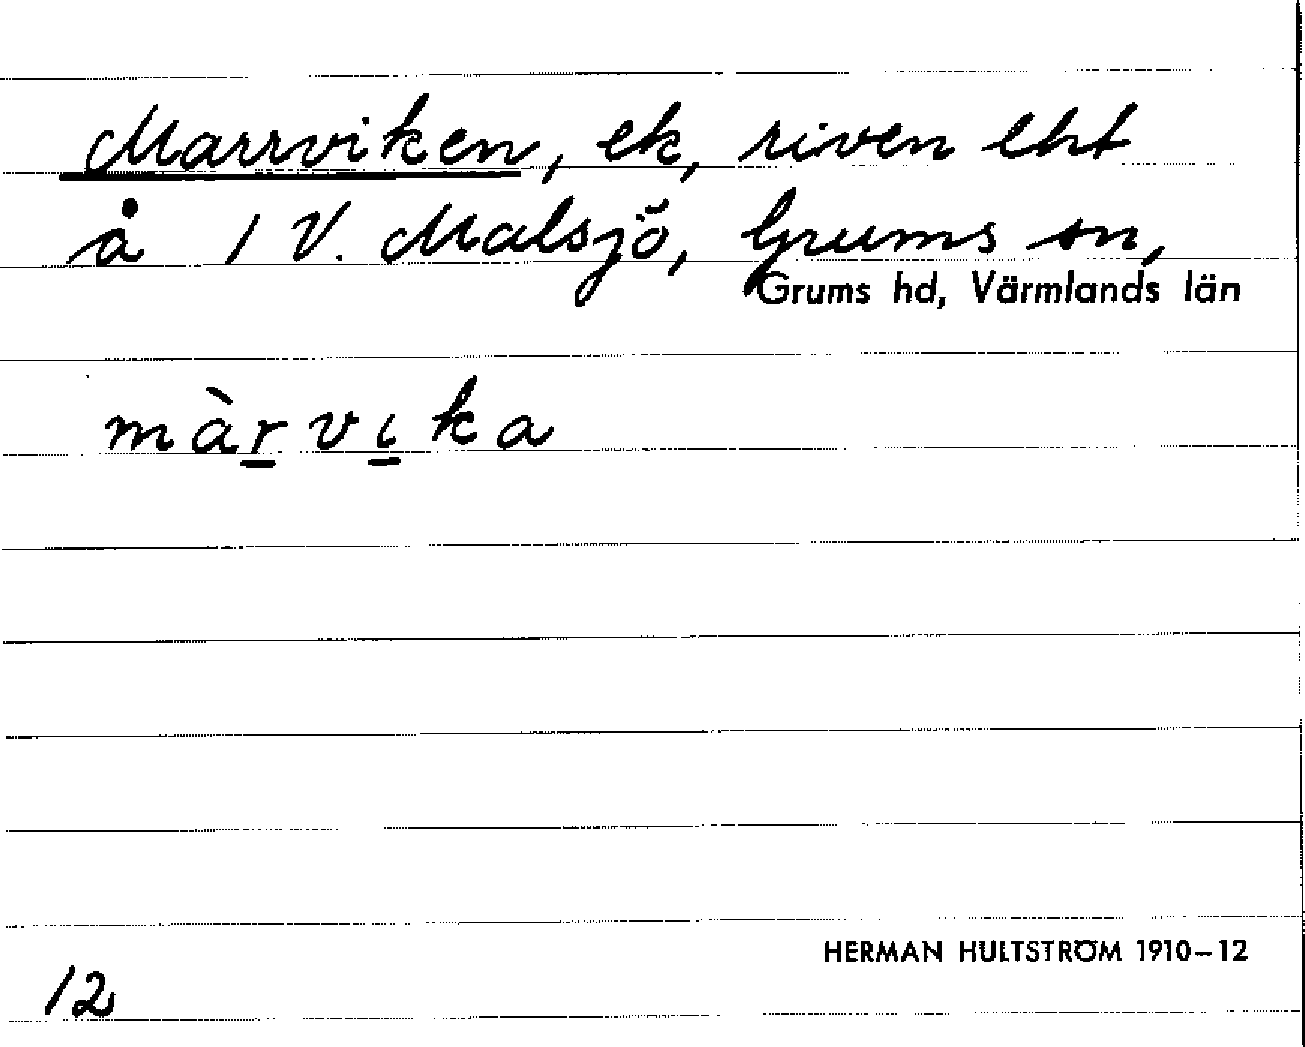 Marrviken, ek, riven lht
å 1 V. Malsjö, Grums sn,
Grums hd, Värmlands län
màrvika
HERMAN HULTSTRÖM 1910–12
12